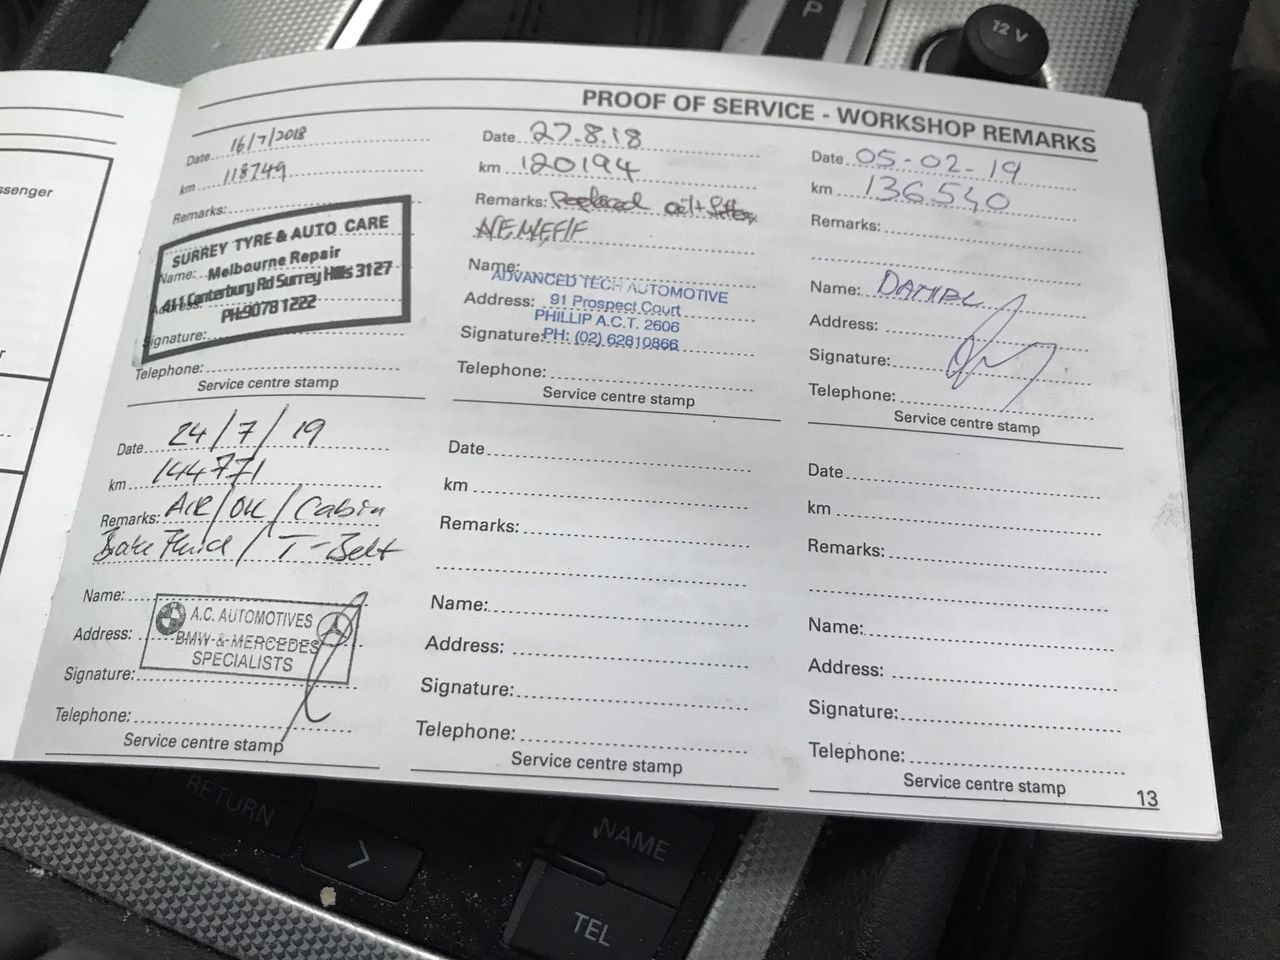 ssenger
r
PROOF OF SERVICE - WORKSHOP REMARKS
Date 16/7/2018
km 118749
Remarks:
SURREY TYRE & AUTO CARE
Name: Melbourne Repair
411 Canterbury Rd Surrey Hills 3127
Address:
PH:9078 1222
Signature:
Telephone:
Service centre stamp
Date 27.8.18
km 120194
Remarks: Replaced oil + filter
Name:
ADVANCED TECH AUTOMOTIVE
Address: 91 Prospect Court
PHILLIP A.C.T. 2606
Signature: PH: (02) 62810866
Telephone:
Service centre stamp
Date 05-02-19
km 136540
Remarks:
Name: DANIEL
Address:
Signature:
Telephone:
Service centre stamp
Date 24/7/19
km 144771
Remarks: AIR/OIL/Cabin
Brake Fluid / T-Belt
Name:
A.C. AUTOMOTIVES
Address: BMW & MERCEDES
SPECIALISTS
Signature:
Telephone:
Service centre stamp
Date
km
Remarks:
Name:
Address:
Signature:
Telephone:
Service centre stamp
Date
km
Remarks:
Name:
Address:
Signature:
Telephone:
Service centre stamp
13
P
12 V
RETURN
>
NAME
TEL